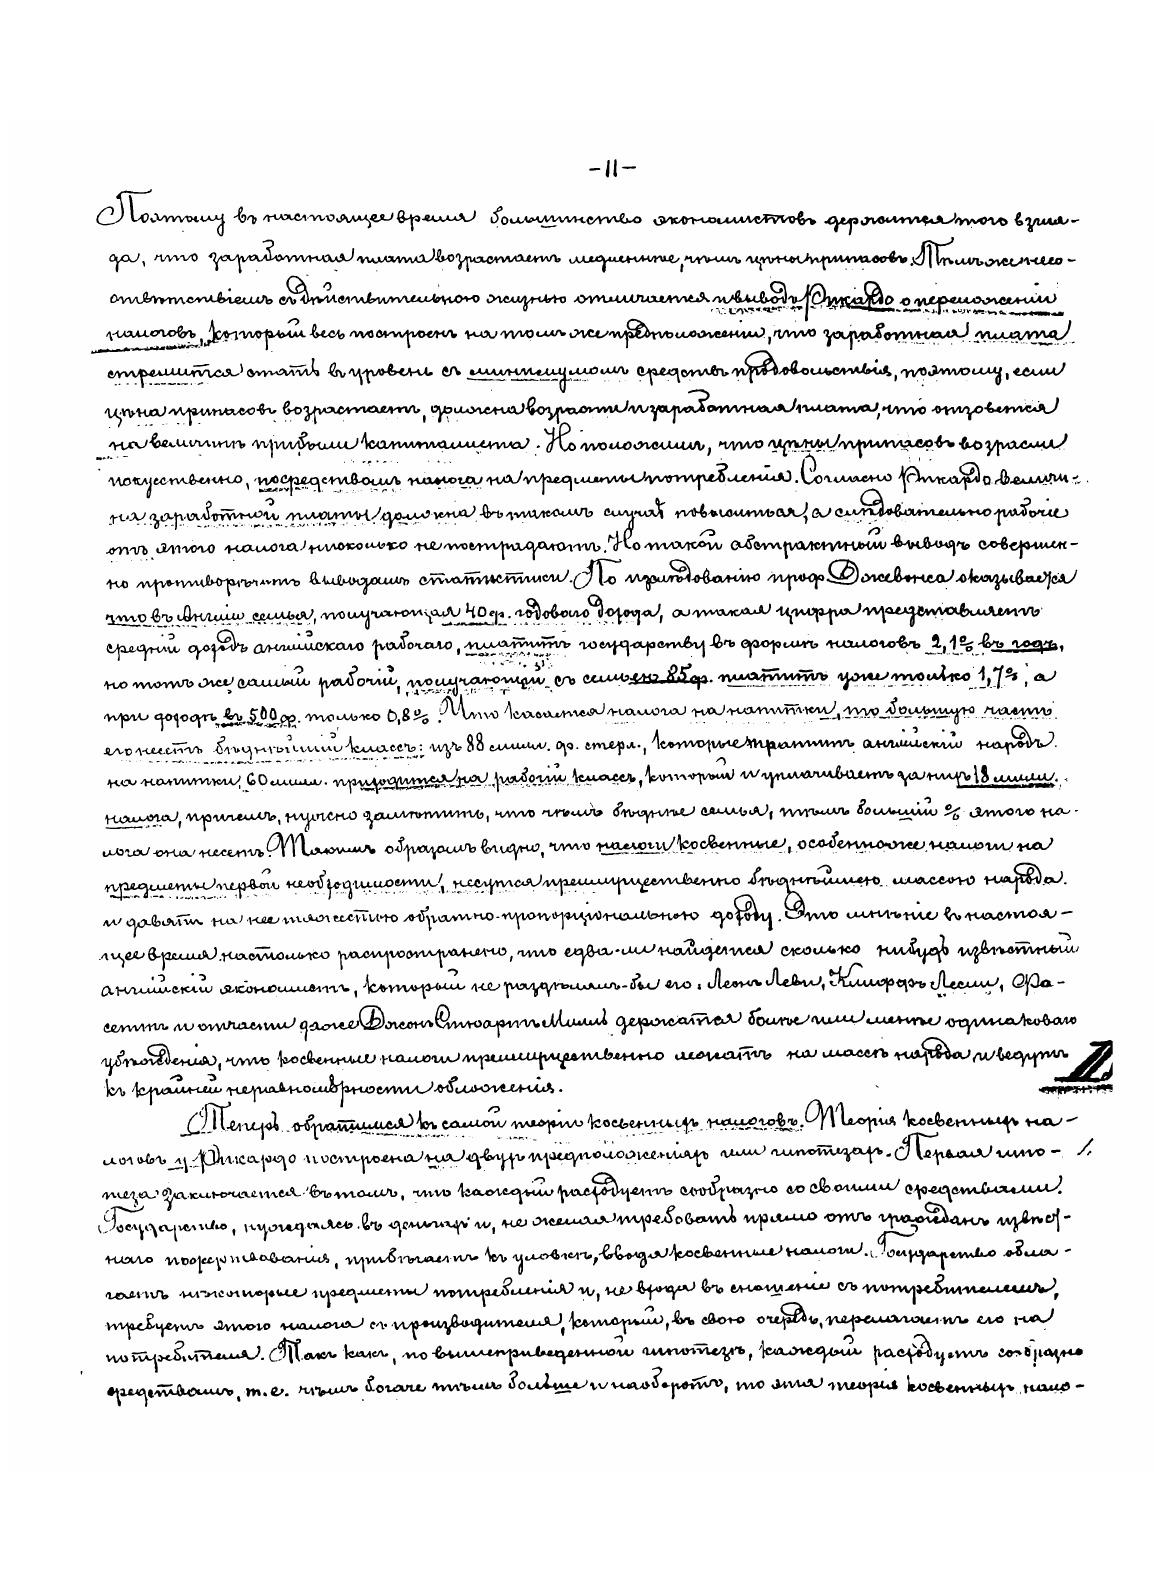 -11-
Поэтому въ настоящее время большинство экономистовъ держится того взгля-
да, что заработная плата возрастаетъ медленнѣе, чѣмъ цѣны припасовъ. Тѣмъ же несо-
отвѣтствіемъ съ дѣйствительною жизнью отличается и выводъ Рикардо о переложеніи
налоговъ, который весь построенъ на томъ же предположеніи, что заработная плата
стремится стать въ уровень съ минимумомъ средствъ продовольствія, поэтому, если
цѣна припасовъ возрастаетъ, должна возрасти и заработная плата, что отзовется
на величинѣ прибыли капиталиста. Но положимъ, что цѣны припасовъ возрасли
искусственно, посредствомъ налога на предметы потребленія. Согласно Рикардо величи-
на заработной платы должна въ такомъ случаѣ повыситься, а слѣдовательно рабочіе
отъ этого налога нисколько не пострадаютъ. Но такой абстрактный выводъ совершен-
но противорѣчитъ выводамъ статистики. По изслѣдованію проф. Джевонса оказывается
что въ Англіи семья, получающая 40 ф. годоваго дохода, а такая цифра представляетъ
средній доходъ англійскаго рабочаго, платитъ государству въ формѣ налоговъ 2,1% въ годъ,
но тотъ же самый рабочій, получающій съ семьею 85 ф. платитъ уже только 1,7%, а
при доходѣ въ 500 ф. только 0,8%. Что касается налога на напитки, то большую часть
его несетъ бѣднѣйшій классъ: изъ 88 милл. ф. стерл., которые тратитъ англійскій народъ
на напитки, 60 милл. приходится на рабочій классъ, который и уплачиваетъ за нихъ 18 милл.
налога, причемъ, нужно замѣтить, что чѣмъ бѣднѣе семья, тѣмъ большій % этого на-
лога она несетъ. Такимъ образомъ видно, что налоги косвенные, особенно же налоги на
предметы первой необходимости, несутся преимущественно бѣднѣйшею массою народа
и давятъ на нее тяжестью обратно-пропорціональною доходу. Это мнѣніе въ настоя-
щее время настолько распространено, что едва-ли найдется сколько нибудь извѣстный
англійскій экономистъ, который не раздѣлялъ-бы его: Леонъ Леви, Клиффъ Лесли, Фа-
сеттъ и отчасти даже Джонъ Стюартъ Милль держатся болѣе или менѣе одинаковаго
убѣжденія, что косвенные налоги преимущественно лежатъ на массѣ народа и ведутъ
къ крайней неравномѣрности обложенія.
Теперь обратимся къ самой теоріи косвенныхъ налоговъ. Теорія косвенныхъ на-
логовъ у Рикардо построена на двухъ предположеніяхъ или гипотезахъ. Первая гипо-
теза заключается въ томъ, что каждый расходуетъ сообразно со своими средствами.
Государство, нуждаясь въ деньгахъ и, не желая требовать прямо отъ гражданъ извѣст-
наго пожертвованія, прибѣгаетъ къ уловкѣ, вводя косвенные налоги. Государство обла-
гаетъ нѣкоторые предметы потребленія и, не входя въ сношеніе съ потребителемъ,
требуетъ этого налога съ производителя, который, въ свою очередь, перелагаетъ его на
потребителя. Такъ какъ, по вышеприведенной гипотезѣ, каждый расходуетъ сообразно
средствамъ, т.е. чѣмъ богаче тѣмъ больше и наоборотъ, то эта теорія косвенныхъ нало-